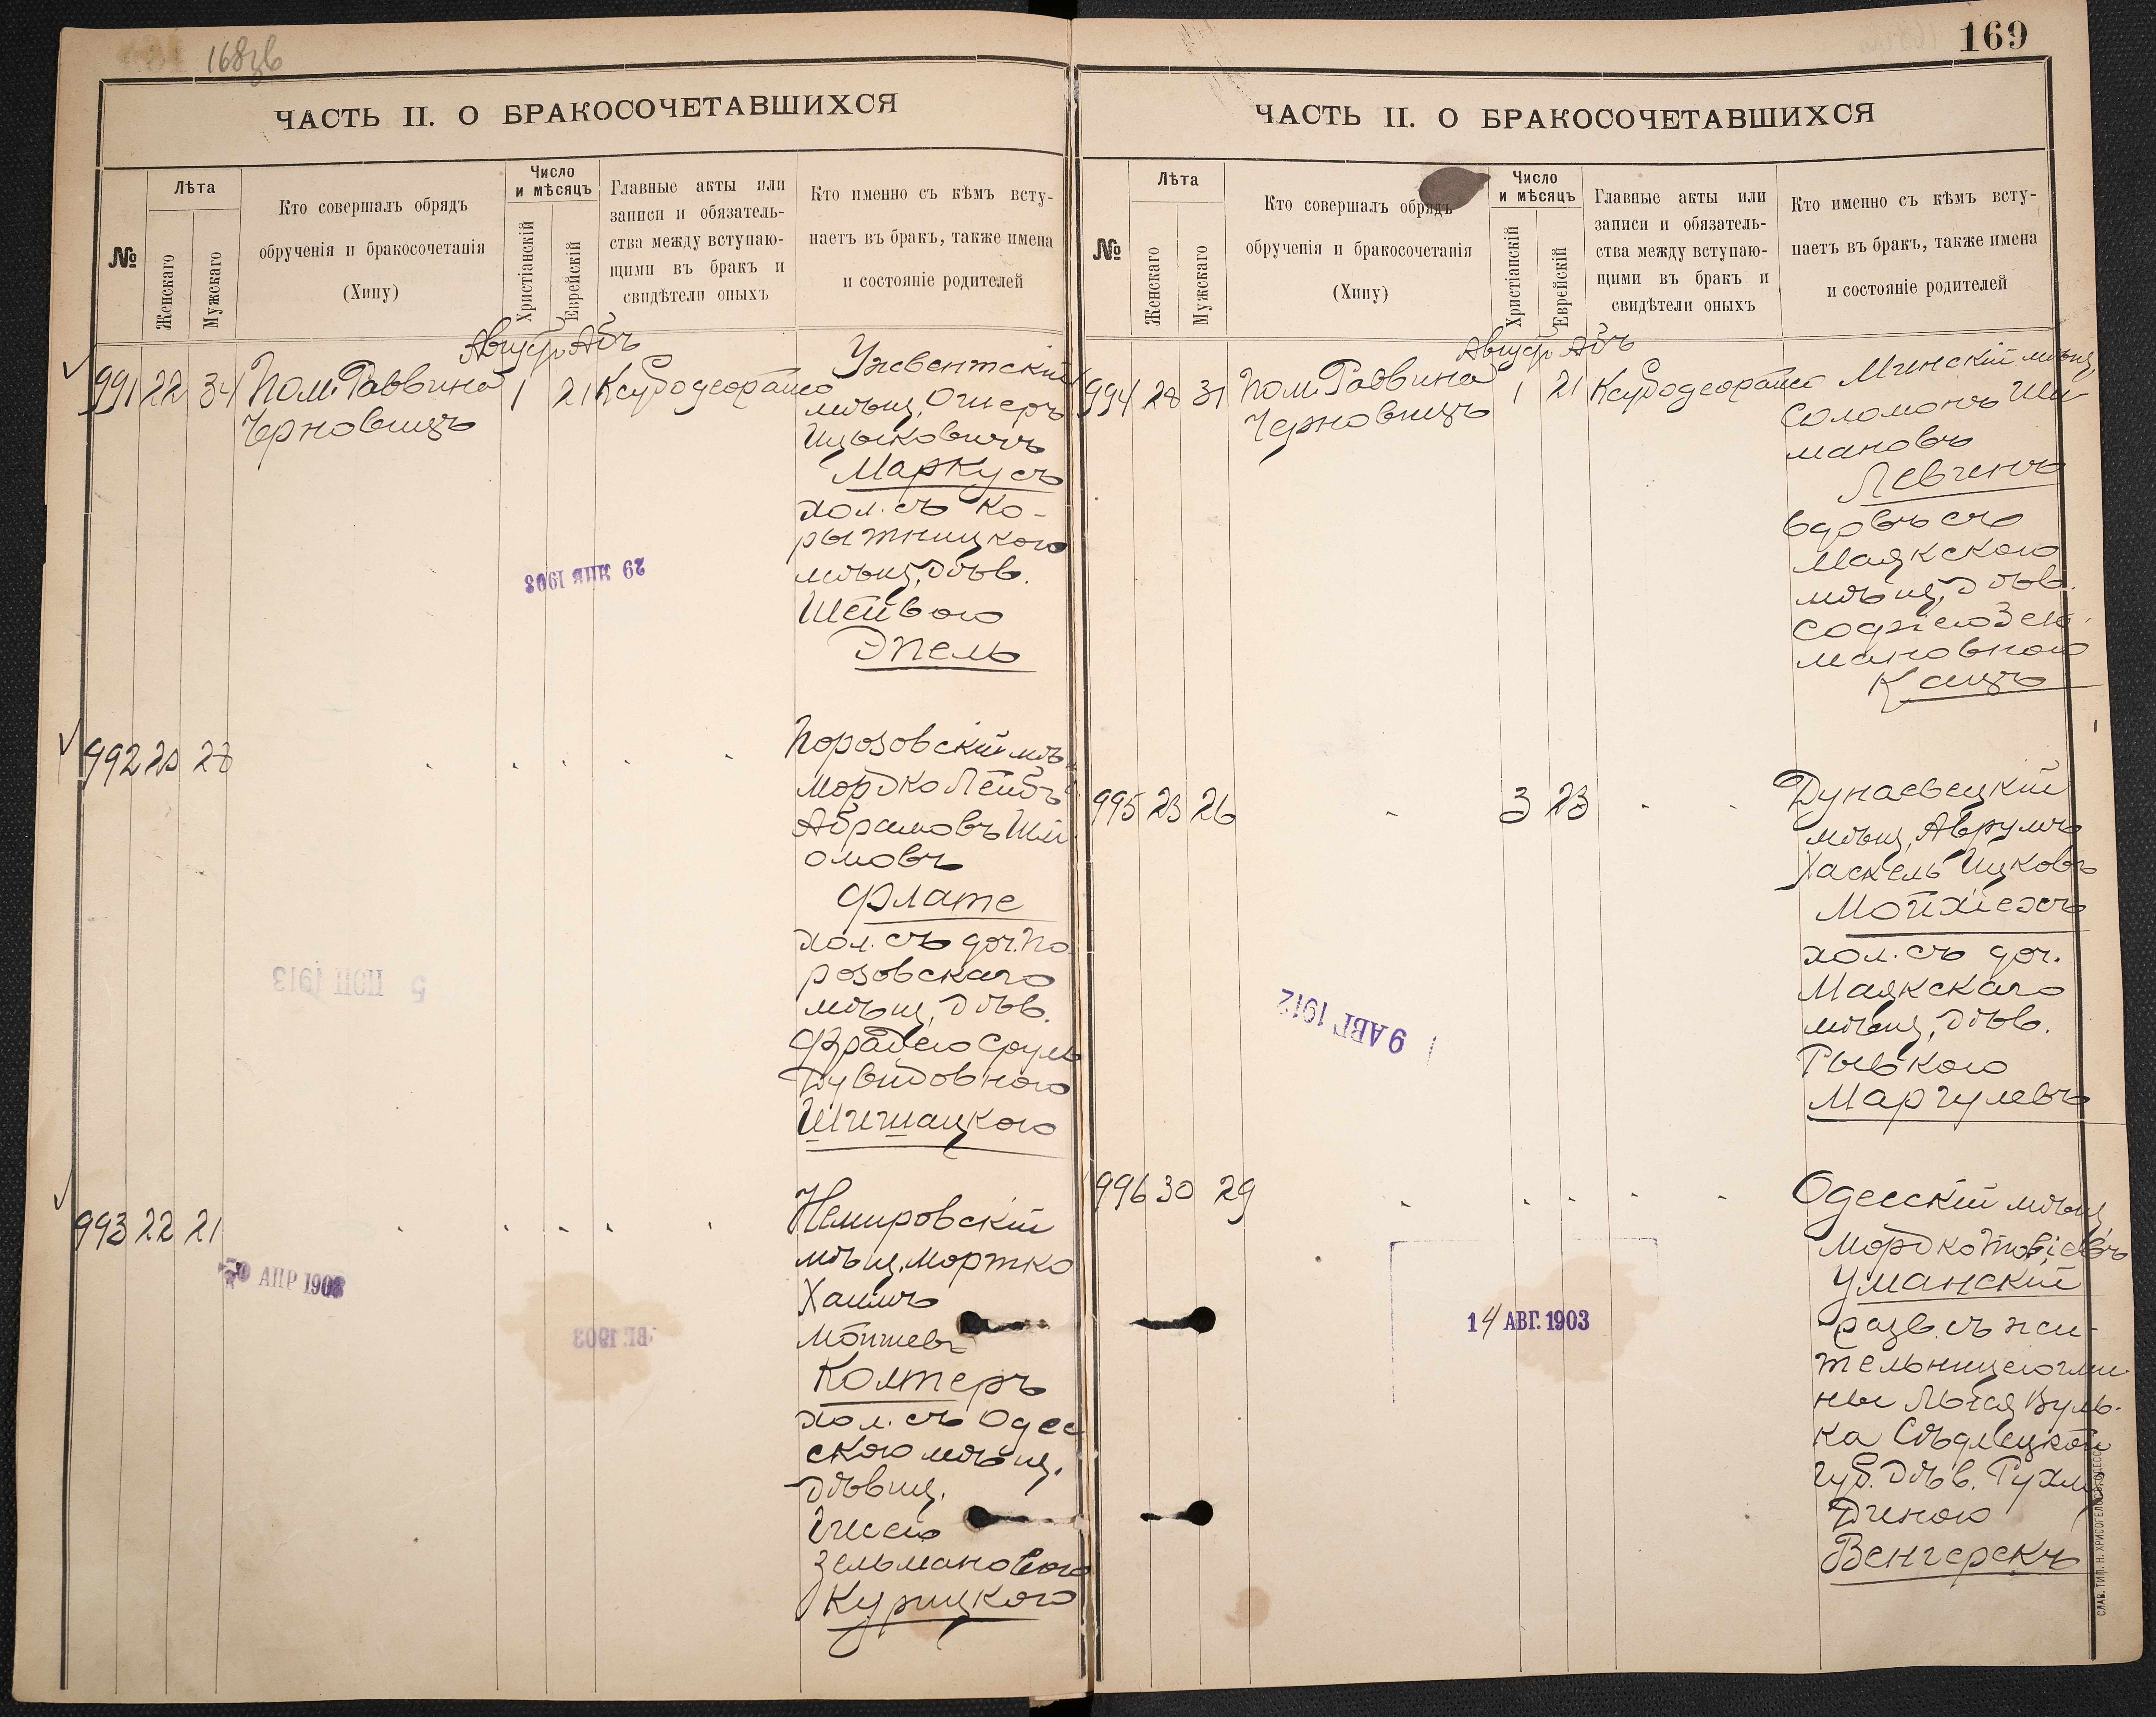 168зв
ЧАСТЬ II. О БРАКОСОЧЕТАВШИХСЯ
№
Лѣта
Женскаго
Мужскаго
Кто совершалъ обрядъ
обрученія и бракосочетанія
(Хипу)
Число
и мѣсяцъ
Христіанскій
Еврейскій
Главные акты или
записи и обязатель-
ства между вступаю-
щими въ бракъ и
свидѣтели оныхъ
Кто именно съ кѣмъ всту-
паетъ въ бракъ, также имена
и состояніе родителей
Август Абъ
991 22 34 Пом. Раввина 1 21
Черновицъ
Ужвентскій
мѣщ. Ошеръ
Ицыковичъ
Маркусъ
хол. съ Ко-
рытницкою
мѣщ. дѣв.
Шейвою
Эпель
29 1903
992 20 28
Порозовскій мѣщ
Мордко Лейбъ
Абрамовъ Шлі
омовъ
Флате
хол. съ доч. По
розовскаго
мѣщ. дѣв.
Фрадею Сруль
Дувидовною
Шишацкою
5 1913
993 22 21
Немировскій
мѣщ. Мортко
Хаимъ
Мошев
Колтеръ
хол. съ Одес
скою мѣщ.
дѣвиц.
Зельмановною
Курицкою
АПР 1908
1903
169
ЧАСТЬ II. О БРАКОСОЧЕТАВШИХСЯ
№
Лѣта
Женскаго
Мужскаго
Кто совершалъ обрядъ
обрученія и бракосочетанія
(Хипу)
Число
и мѣсяцъ
Христіанскій
Еврейскій
Главные акты или
записи и обязатель-
ства между вступаю-
щими въ бракъ и
свидѣтели оныхъ
Кто именно съ кѣмъ всту-
паетъ въ бракъ, также имена
и состояніе родителей
Август Абъ
994 28 31 Пом. Раввина 1 21
Черновицъ
Минскій мѣщ.
Соломонъ Ши-
мановъ
Левинъ
вдовъ съ
Маякскою
мѣщ. дѣв.
Софіею Зель-
мановною
Кацъ
995 23 26 3 23
Дунаевецкій
мѣщ. Аврумъ
Хаскель Ицковъ
Мойхіехъ
хол. съ доч.
Маякскаго
мѣщ. дѣв.
Рывкою
Маргулевъ
9 АВГ 1912
996 30 29
Одесскій мѣщ.
Мордко Товіевъ
Уманскій
разв. съ жи-
тельницею гми-
ны Вуль-
ка Сѣдлецкой
губ. дѣв. Рухлею
Диною
Венгерекъ
14 АВГ. 1903
СЛАВ. ТИП. Н. ХРИСОГЕЛОСЪ, ОДЕССА